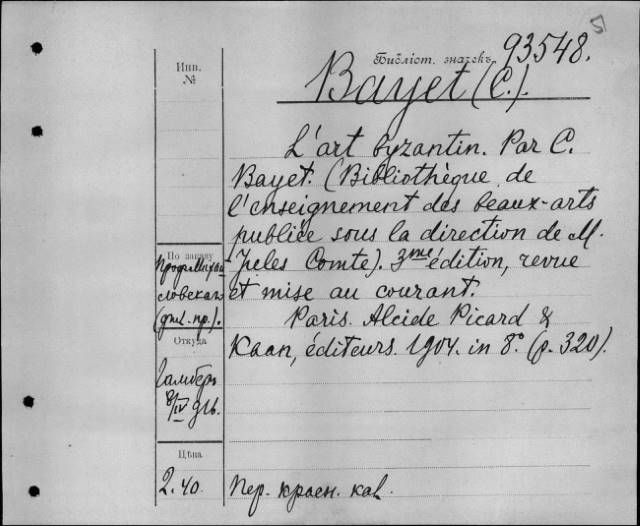 Библіот. значекъ 93548.
Инв.
№
Bayet (C.).
L'art byzantin. Par C.
Bayet. (Bibliothèque de
l'enseignement des beaux-arts
publiée sous la direction de M.
Jules Comte). 3me édition, revue
et mise au courant.
Paris. Alcide Picard &
Kaan, éditeurs. 1904. in 8° (p. 320).
По заказу
словскаго
Откуда
8/IV 916.
Цѣна
2.40.
Пер. красн. кол.